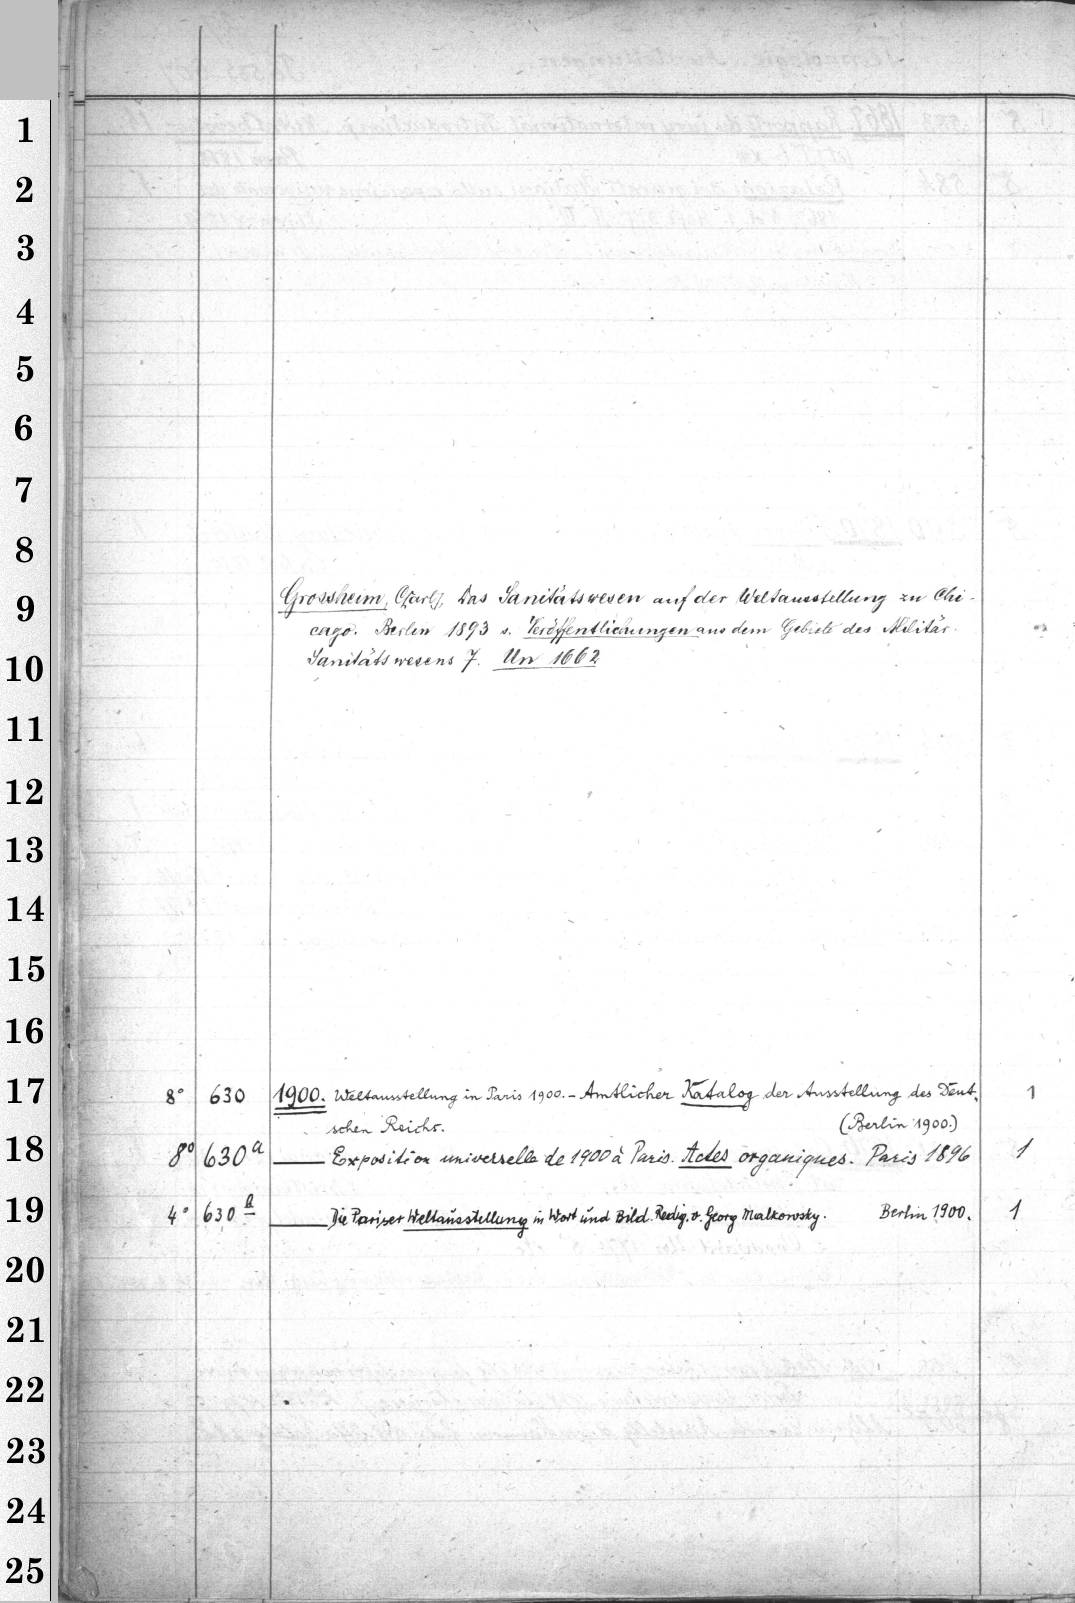 1
2
3
4
5
6
7
8
9 Grossheim, C[arl], Das Sanitätswesen auf der Weltausstellung zu Chi-
cago. Berlin 1893 s. Veröffentlichungen aus dem Gebiete des Militär-
10 Sanitätswesens 7. Un 1662
11
12
13
14
15
16
17 8° 630 1900. Weltausstellung in Paris 1900. – Amtlicher Katalog der Ausstellung des Deut- 1
schen Reichs. (Berlin 1900.)
18 8° 630a —— Exposition universelle de 1900 à Paris. Actes organiques. Paris 1896 1
19 4° 630 —— Die Pariser Weltausstellung in Wort und Bild. Redig. v. Georg Malkowsky. Berlin 1900. 1
20
21
22
23
24
25